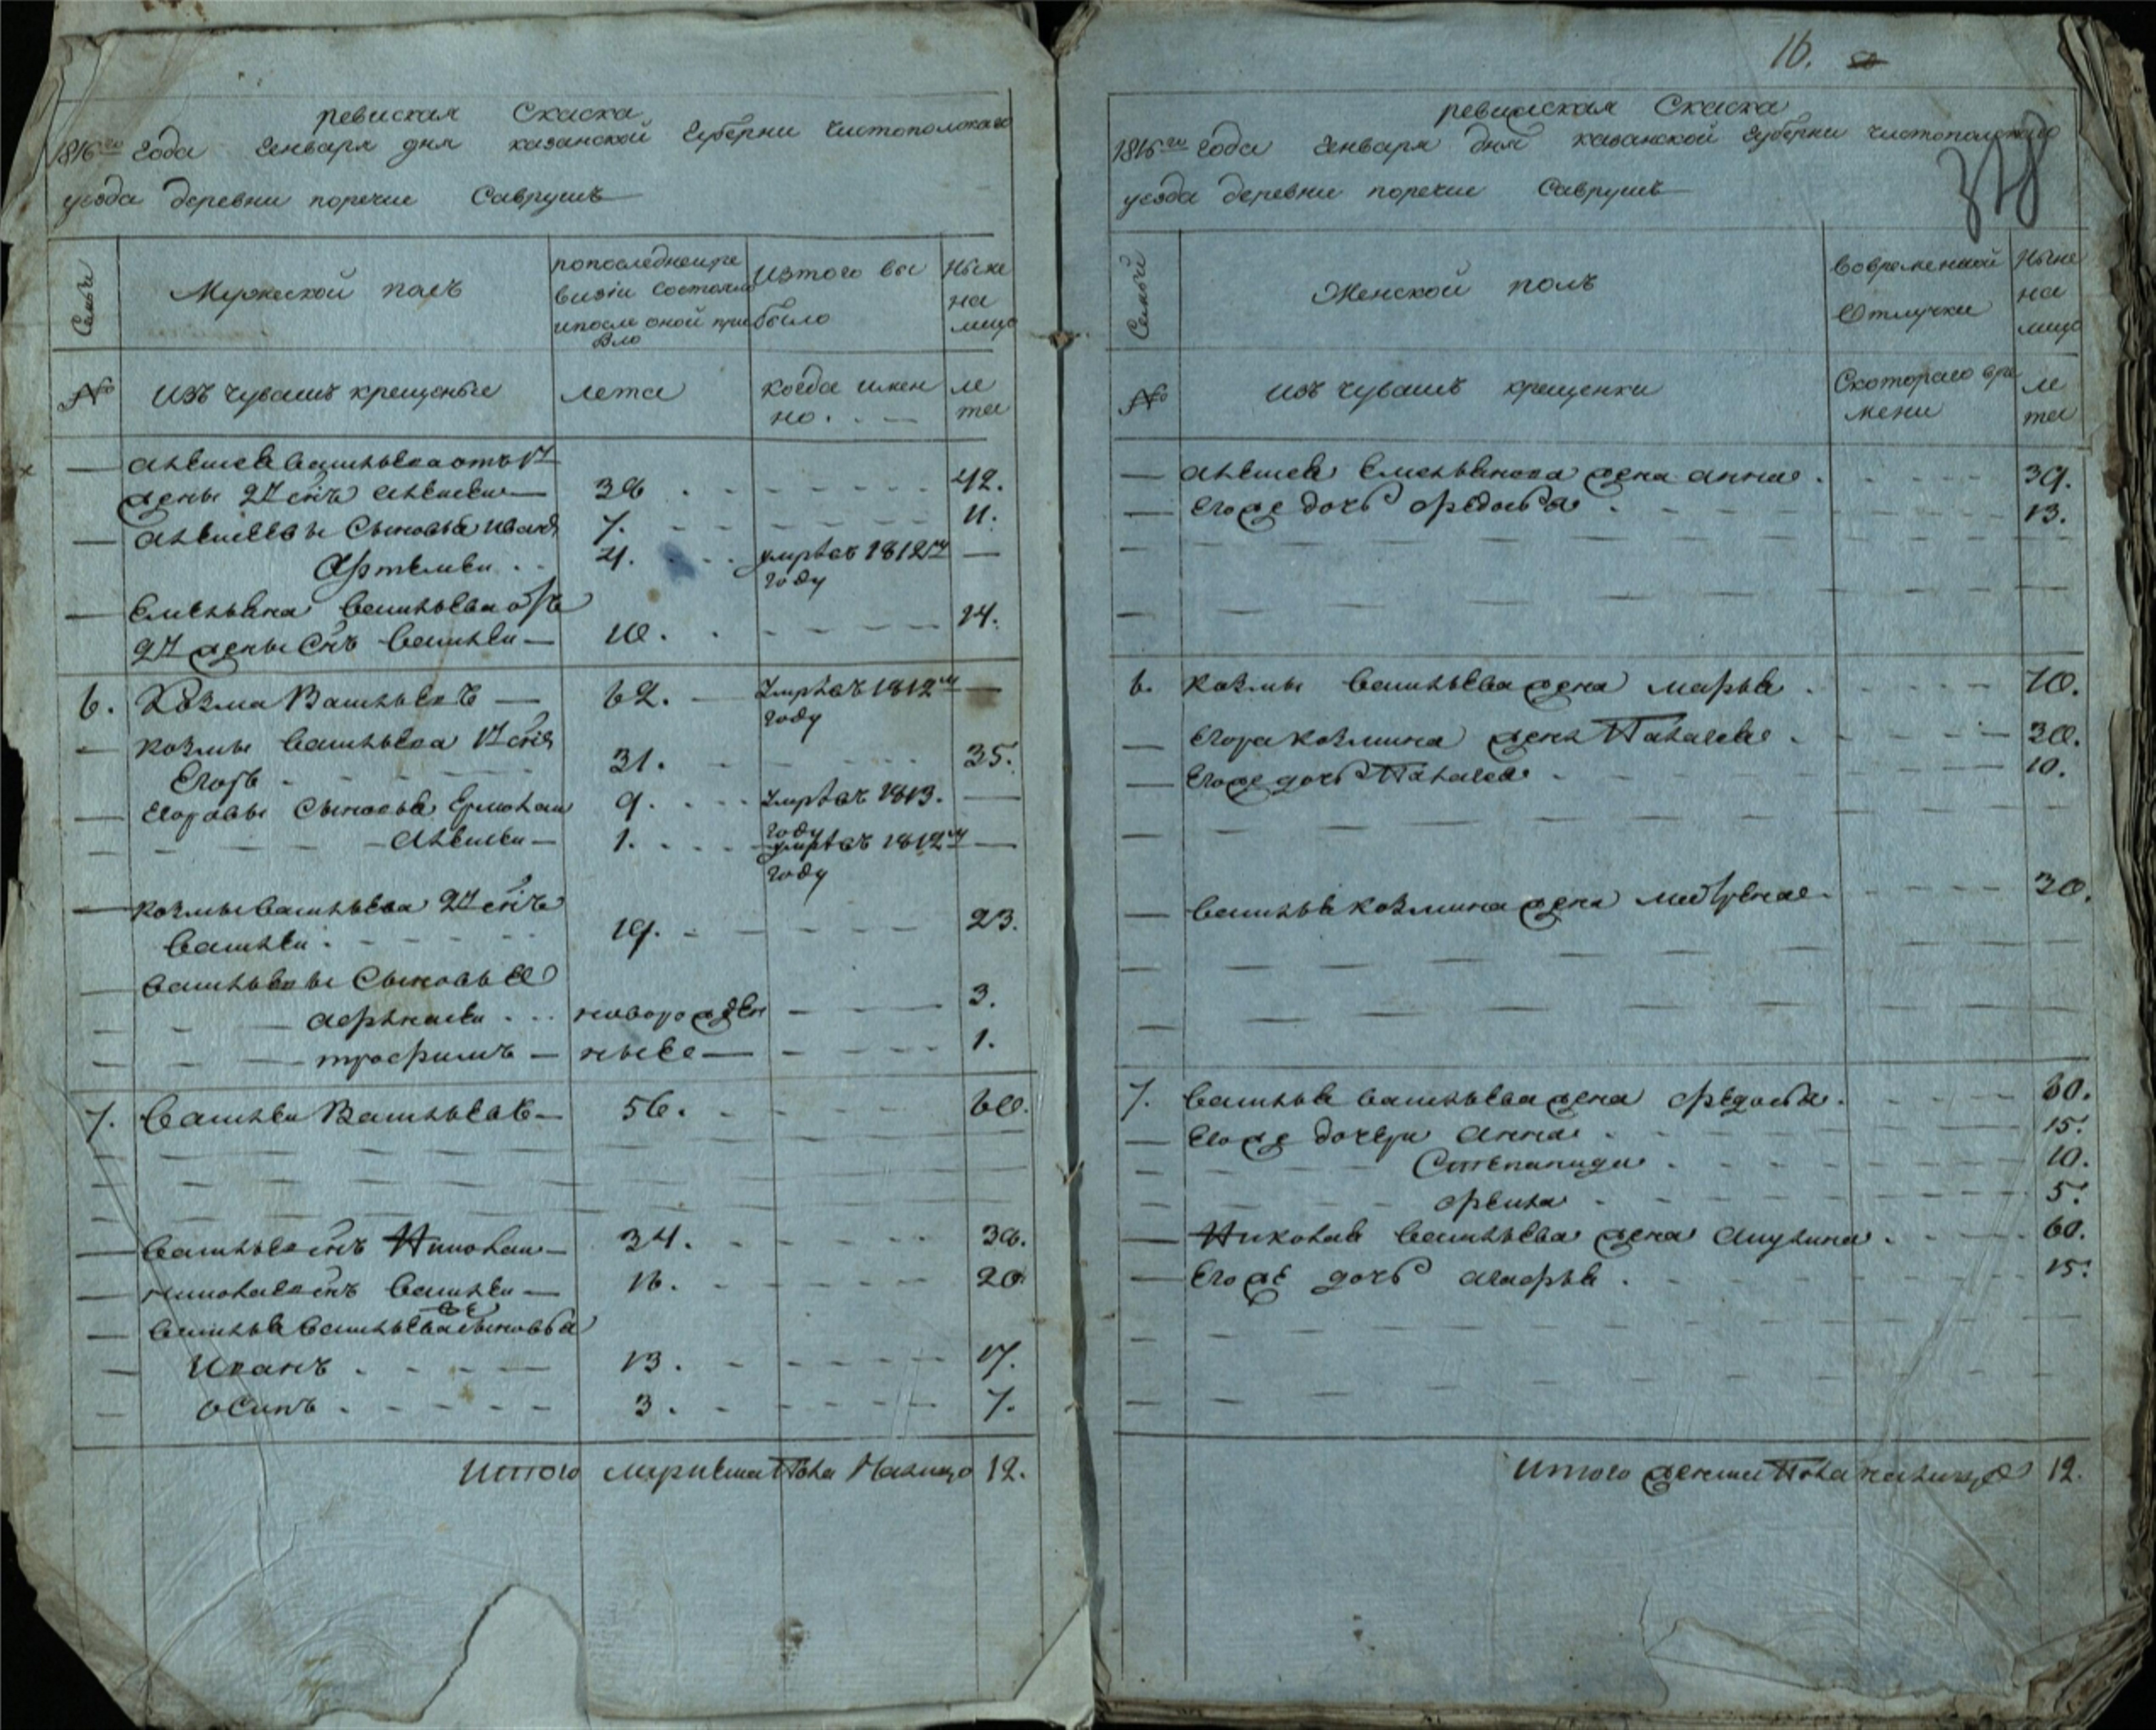 ревиская Скаска
1816го Года Генваря дня казанской Губерни Чистополского
уезда деревни поречие Саврушъ
Семьи
Мужеской полъ
попоследнейре
визiи состояло
ипосле оной при
было
Изтого вы
было
Ныне
на
лицо
№
Изъ чувашъ крещеные
лета
когда имен
но.
ле
та
отъ 1й
жены 2й снъ Алексей 38 42.
Алексеевы Сыновья иванъ 7. 11.
Артемей 4. умре въ 1812м
году
Емельяна Васильева отъ
2й жены Снъ Василей 10. 14.
6. Козма Васильевъ 62. Умре въ 1812м
году
Козмы Васильева 1й снъ
Егоръ 31. 35.
Егоровы Сыновья Ермолай 9. Умре въ 1813.
году
Алексей 1. умре въ 1812м
году
Козмы Васильева 2й снъ
Василей 19. 23.
Васильевы Сыновья
Афанасей новорожден 3.
трофимъ ные 1.
7. Василей Васильевъ 56. 60.
Васильевъ снъ Николай 34. 38.
Николаевъ снъ Василей 16. 20.
Василья Васильева Сыновья
Иванъ 13. 17.
Осипъ 3. 7.
Итого мужеска Пола Налицо 12.
16.
318
ревиская Скаска
1816го Года Генваря дня казанской Губерни чистополского
уезда деревни поречие Саврушъ
Семьи
Женской полъ
Вовременной
Отлучки
Ныне
на
лицо
№
Изъ чувашъ крещенки
Скотораго вре
мени
ле
та
Алексея Емельянова жена анна 39.
Егоже дочь федосья 13.
6. Козмы Васильева жена марья 70.
Егора Козмина жена Палагея 38.
Егоже дочь Палагея 10.
Василья Козмина жена матрена 30.
7. Василья Васильева жена федосья 60.
Егоже дочери Анна 15.
Степанида 10.
фекла 5.
Николая Васильева жена Акулина 60.
Егоже дочь агафья 15.
Итого женска Пола налицо 12.